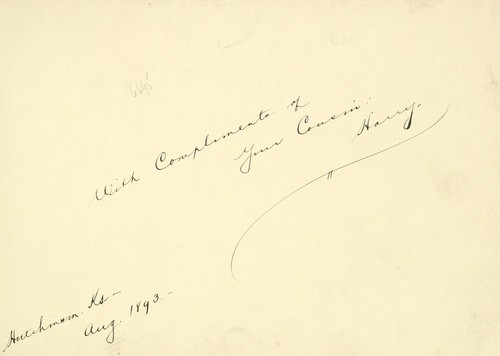 With Compliments of
Your Cousin.
Harry.
Hutchinson. Ks –
Aug. 1893. –